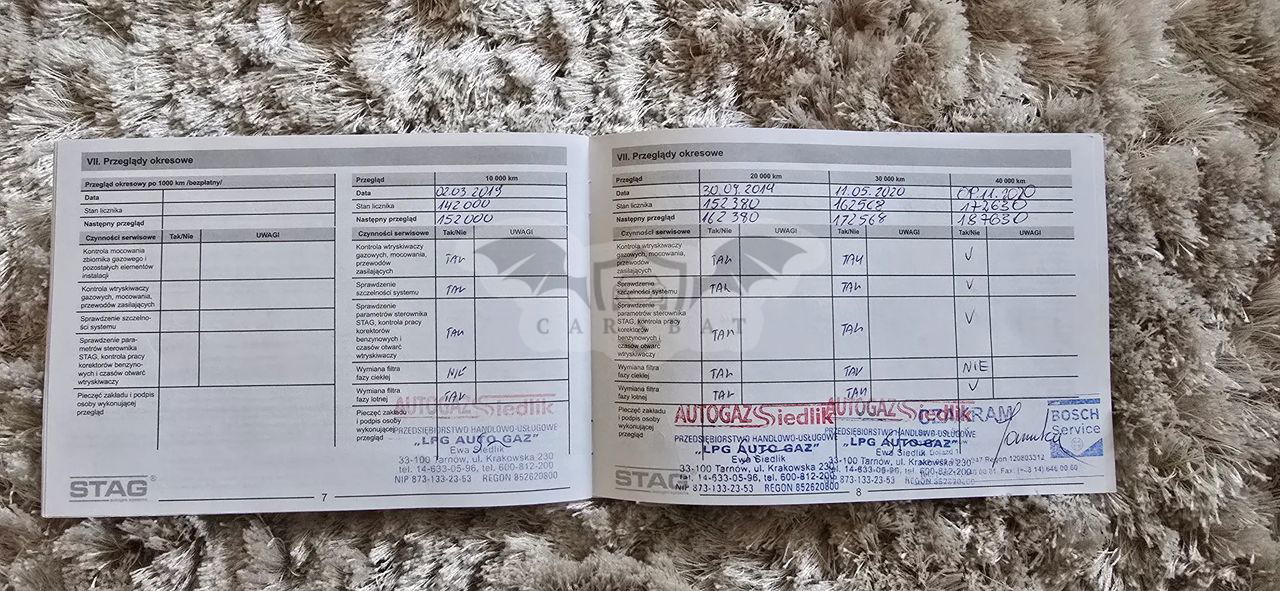 VII. Przeglądy okresowe
Przegląd okresowy po 1000 km /bezpłatny/
Data
Stan licznika
Następny przegląd
Czynności serwisowe Tak/Nie UWAGI
Kontrola mocowania
zbiornika gazowego i
pozostałych elementów
instalacji
Kontrola wtryskiwaczy
gazowych, mocowania,
przewodów zasilających
Sprawdzenie szczelno-
ści systemu
Sprawdzenie para-
metrów sterownika
STAG, kontrola pracy
korektorów benzyno-
wych i czasów otwarć
wtryskiwaczy
Pieczęć zakładu i podpis
osoby wykonującej
przegląd
STAG
7
Przegląd 10 000 km
Data 02.03.2019
Stan licznika 142 000
Następny przegląd 152 000
Czynności serwisowe Tak/Nie UWAGI
Kontrola wtryskiwaczy
gazowych, mocowania,
przewodów
zasilających
TAK
Sprawdzenie
szczelności systemu
TAK
Sprawdzenie
parametrów sterownika
STAG, kontrola pracy
korektorów
benzynowych i
czasów otwarć
wtryskiwaczy
TAK
Wymiana filtra
fazy ciekłej
NIE
Wymiana filtra
fazy lotnej
TAK
Pieczęć zakładu
i podpis osoby
wykonującej
przegląd
AUTOGAZ Siedlik
PRZEDSIĘBIORSTWO HANDLOWO-USŁUGOWE
„LPG AUTO GAZ”
Ewa Siedlik
33-100 Tarnów, ul. Krakowska 230
tel. 14-633-05-96, tel. 600-812-200
NIP 873-133-23-53 REGON 852620800
VII. Przeglądy okresowe
Przegląd 20 000 km 30 000 km 40 000 km
Data 30.09.2019 11.05.2020 09.11.2020
Stan licznika 152 380 162568 172630
Następny przegląd 162 380 172568 187630
Czynności serwisowe Tak/Nie UWAGI Tak/Nie UWAGI Tak/Nie UWAGI
Kontrola wtryskiwaczy
gazowych, mocowania,
przewodów
zasilających
TAK TAK ✓
Sprawdzenie
szczelności systemu
TAK TAK ✓
Sprawdzenie
parametrów sterownika
STAG, kontrola pracy
korektorów
benzynowych i
czasów otwarć
wtryskiwaczy
TAK TAK ✓
Wymiana filtra
fazy ciekłej
TAK TAK NIE
Wymiana filtra
fazy lotnej
TAK TAK ✓
Pieczęć zakładu
i podpis osoby
wykonującej
przegląd
AUTOGAZ Siedlik
PRZEDSIĘBIORSTWO HANDLOWO-USŁUGOWE
„LPG AUTO GAZ”
Ewa Siedlik
33-100 Tarnów, ul. Krakowska 230
tel. 14-633-05-96, tel. 600-812-200
NIP 873-133-23-53 REGON 852620800
AUTOGAZ Siedlik
PRZEDSIĘBIORSTWO HANDLOWO-USŁUGOWE
„LPG AUTO GAZ”
Ewa Siedlik
33-100 Tarnów, ul. Krakowska 230
BOSCH
Service
STAG
8
CAR BAT